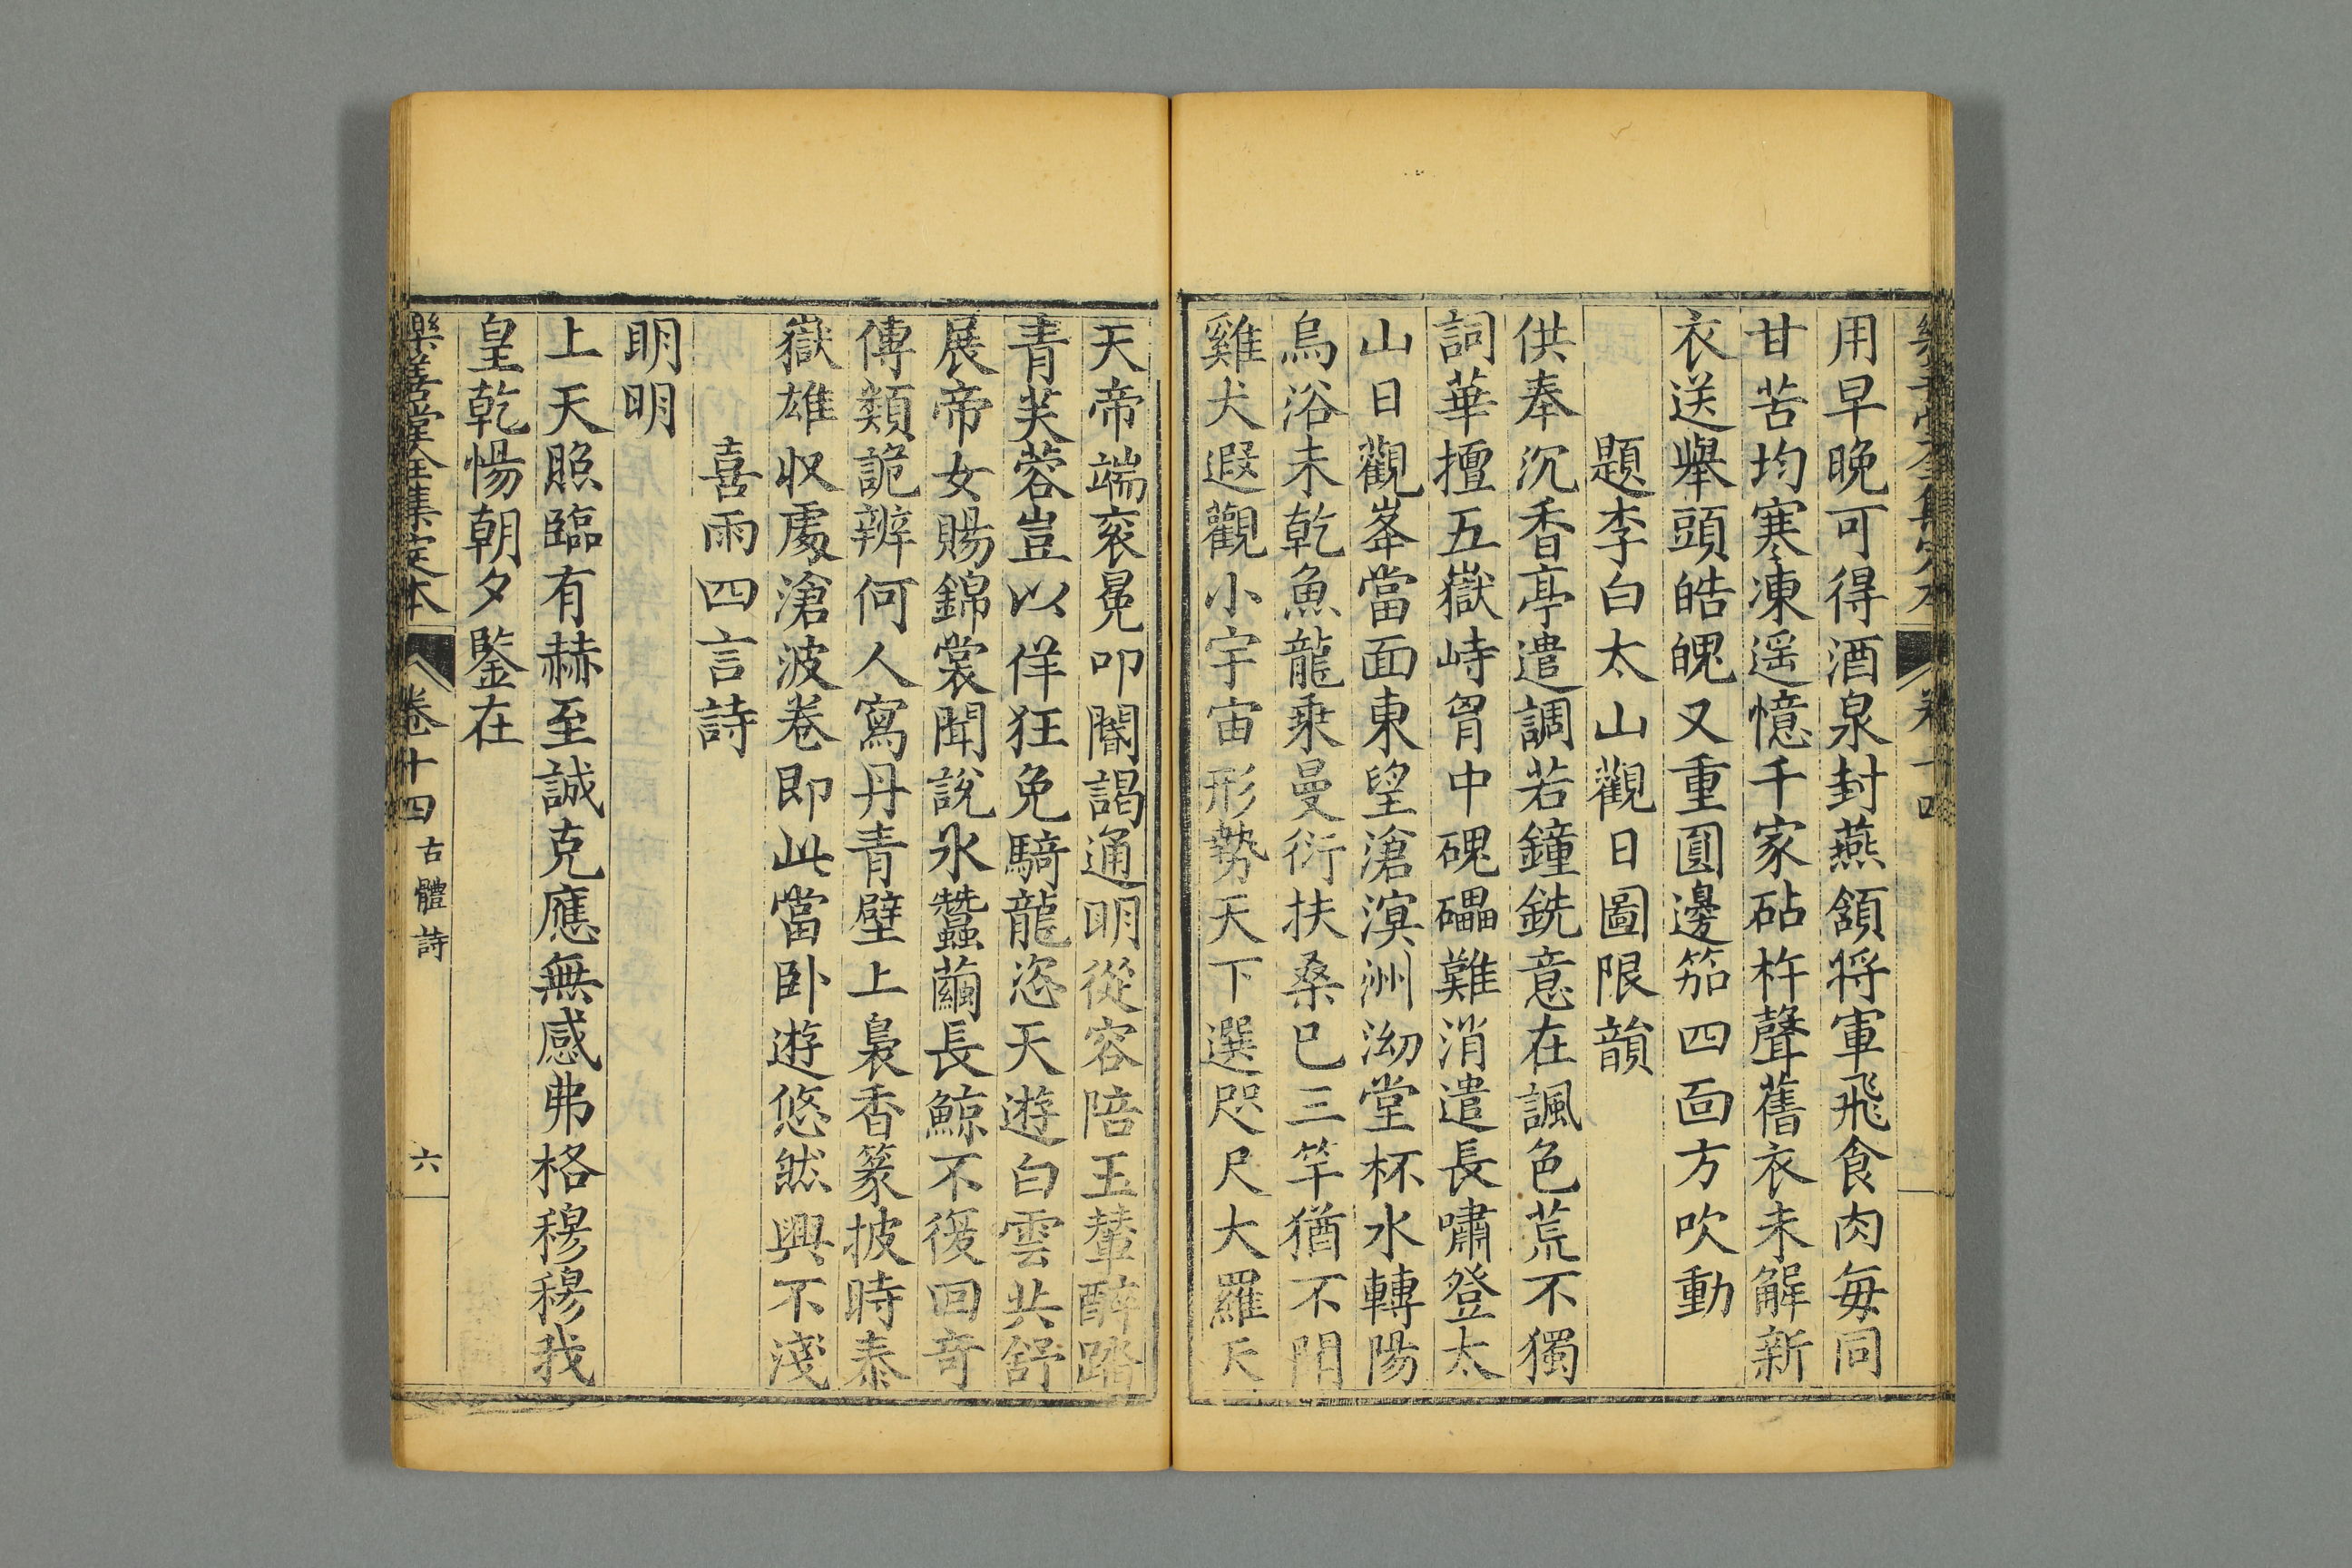 樂善堂全集定本 卷十四
用早晚可得酒泉封燕頷將軍飛食肉每同
甘苦均寒凍遥憶千家砧杵聲舊衣未解新
衣送舉頭皓魄又重圓邊笳四面方吹動
題李白太山觀日圖限韻
供奉沉香亭遣調若鐘銑意在諷色荒不獨
詞華擅五嶽峙胷中磈礧難消遣長嘯登太
山日觀峯當面東望滄溟洲泑堂杯水轉陽
烏浴未乾魚龍乘曼衍扶桑已三竿猶不聞
雞犬遐觀小宇宙形勢天下選咫尺大羅天
天帝端衮冕叩閽謁通明從容陪玉輦醉踏
青芙蓉豈以佯狂免騎龍恣天遊白雲共舒
展帝女賜錦裳聞說氷蠶繭長鯨不復回奇
傳類詭辨何人寫丹青壁上裊香篆披時泰
嶽雄収處滄波卷即此當卧遊悠然興不淺
喜雨四言詩
明明
上天照臨有赫至誠克應無感弗格穆穆我
皇乾惕朝夕鑒在
樂善堂全集定本 卷十四 古體詩 六